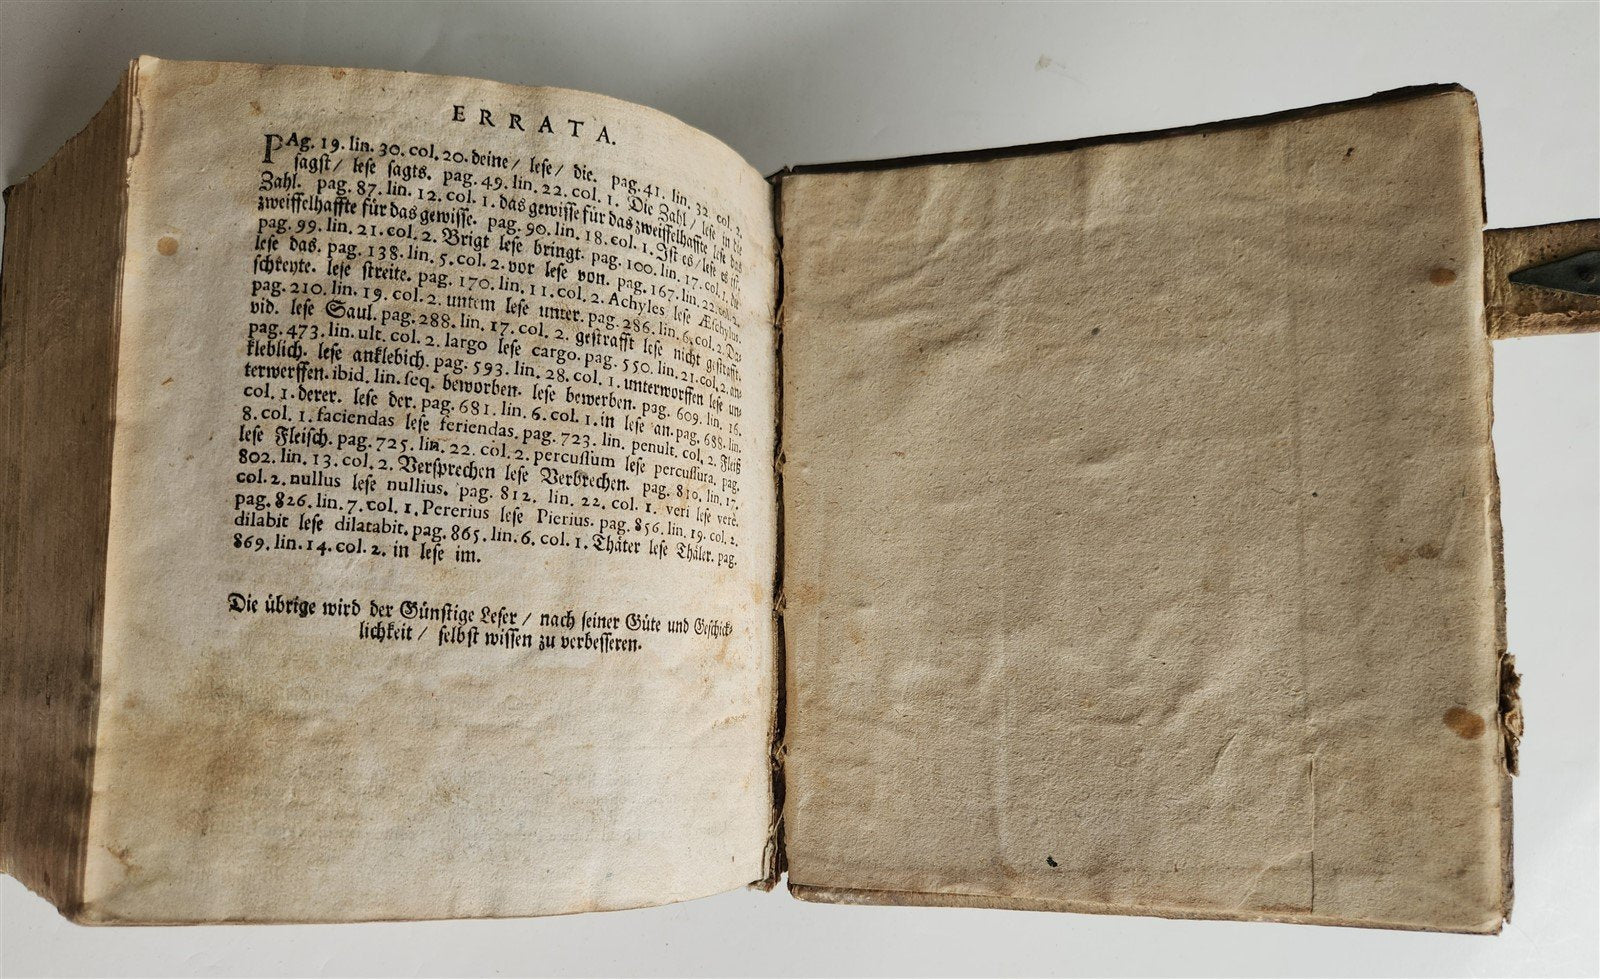 ERRATA.
PAg. 19. lin. 30. col. 20. deine / lese / die. pag. 41. lin. 32. col. 2.
sagst / lese sagts. pag. 49. lin. 22. col. 1. Die Zahl / lese in die
Zahl. pag. 87. lin. 12. col. 1. das gewisse für das zweiffelhaffte lese das
zweiffelhaffte für das gewisse. pag. 90. lin. 18. col. 1. Ist es / lese es ist.
pag. 99. lin. 21. col. 2. Brigt lese bringt. pag. 100. lin. 17. col. 1. die
lese das. pag. 138. lin. 5. col. 2. vor lese von. pag. 167. lin. 22. col. 2.
schreyte. lese streite. pag. 170. lin. 11. col. 2. Achyles lese Æschylus.
pag. 210. lin. 19. col. 2. untem lese unter. pag. 286. lin. 6. col. 2. Da-
vid. lese Saul. pag. 288. lin. 17. col. 2. gestrafft lese nicht gestrafft.
pag. 473. lin. ult. col. 2. largo lese cargo. pag. 550. lin. 21. col. 2. an-
kleblich. lese anklebich. pag. 593. lin. 28. col. 1. unterworffen lese un-
terwerffen. ibid. lin. seq. beworben. lese bewerben. pag. 609. lin. 16.
col. 1. derer. lese der. pag. 681. lin. 6. col. 1. in lese an. pag. 688. lin.
8. col. 1. faciendas lese feriendas. pag. 723. lin. penult. col. 2. Fleiß
lese Fleisch. pag. 725. lin. 22. col. 2. percussum lese percussura. pag.
802. lin. 13. col. 2. Versprechen lese Verbrechen. pag. 810. lin. 17.
col. 2. nullus lese nullius. pag. 812. lin. 22. col. 1. veri lese verè.
pag. 826. lin. 7. col. 1. Pererius lese Pierius. pag. 856. lin. 19. col. 2.
dilabit lese dilatabit. pag. 865. lin. 6. col. 1. Thäter lese Thäler. pag.
869. lin. 14. col. 2. in lese im.
Die übrige wird der Günstige Leser / nach seiner Güte und Geschick-
lichkeit / selbst wissen zu verbesseren.